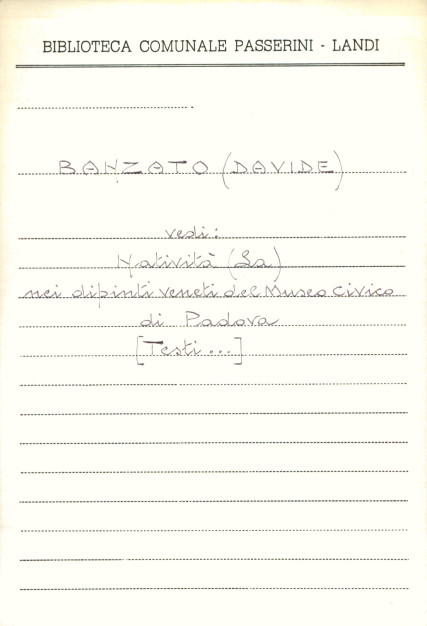 BIBLIOTECA COMUNALE PASSERINI - LANDI
BANZATO (DAVIDE)
vedi:
Natività (La)
nei dipinti veneti del Museo Civico
di Padova
[Testi ...]